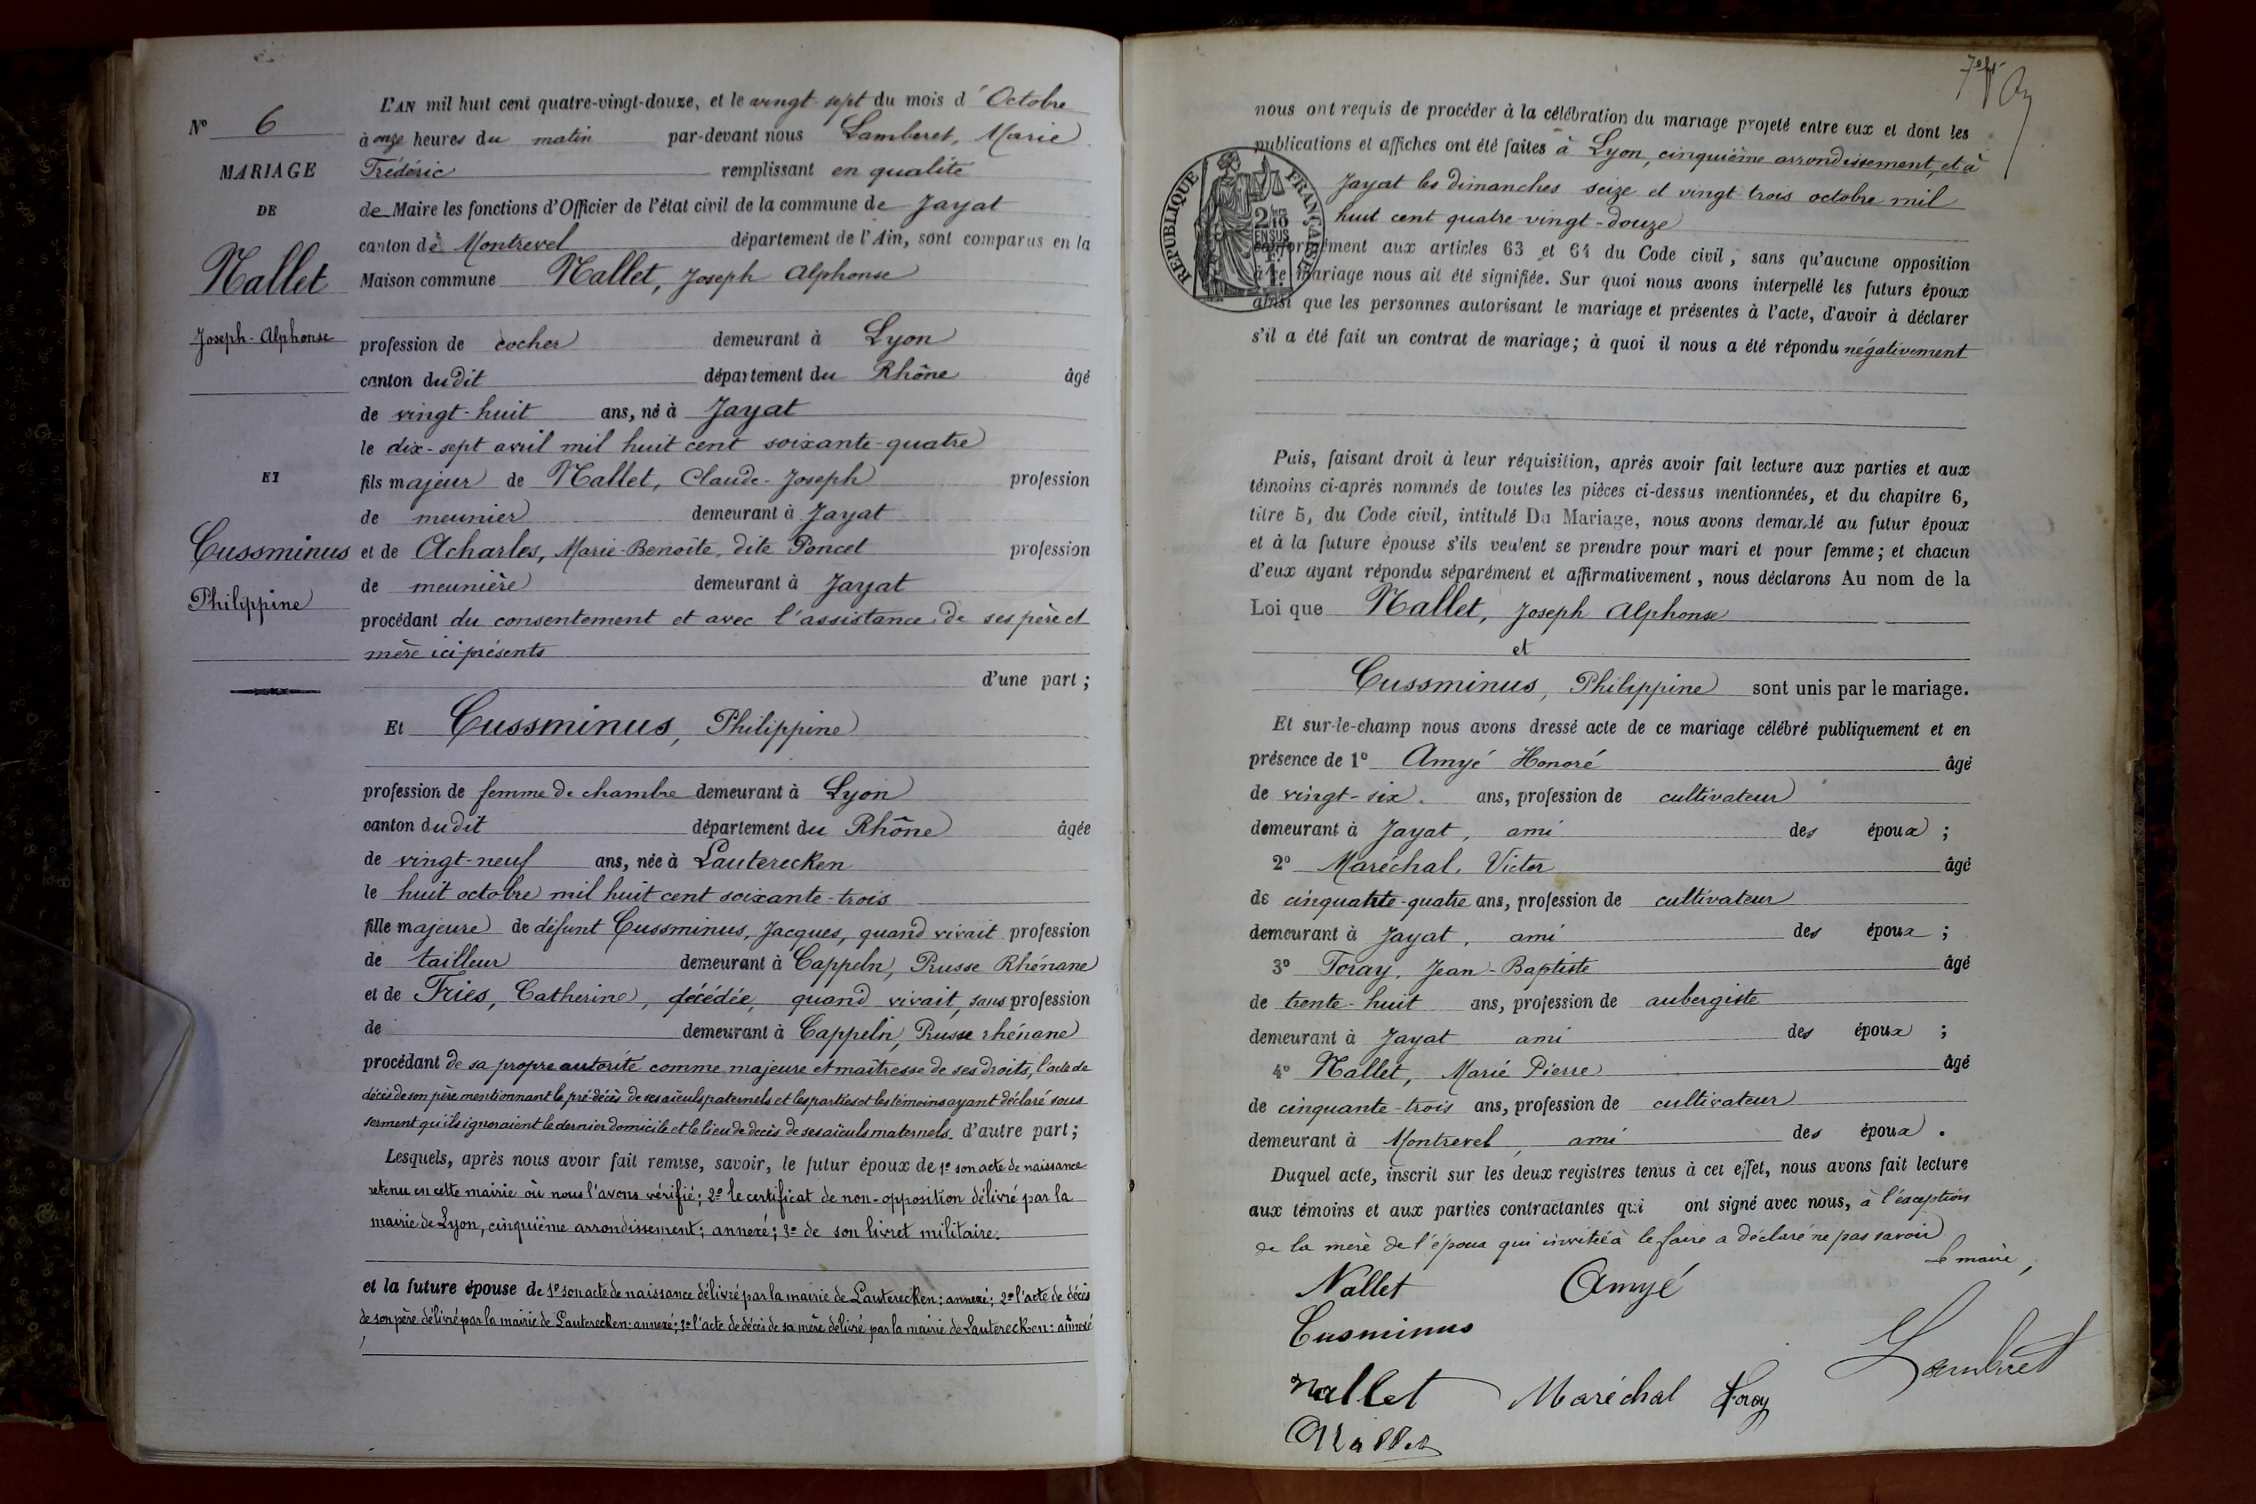 N° 6
MARIAGE
DE
Nallet
Joseph-Alphonse
ET
Cussminus
Philippine
L'AN mil huit cent quatre-vingt-douze, et le vingt-sept du mois d'Octobre
à onze heures du matin par-devant nous Lamberet, Marie
Frédéric remplissant en qualité
de Maire les fonctions d'Officier de l'état civil de la commune de Jayat
canton de Montrevel département de l'Ain, sont comparus en la
Maison commune Nallet, Joseph Alphonse
profession de cocher demeurant à Lyon
canton dudit département du Rhône âgé
de vingt-huit ans, né à Jayat
le dix-sept avril mil huit cent soixante-quatre
fils majeur de Nallet, Claude-Joseph profession
de meunier demeurant à Jayat
et de Acharles, Marie-Benoîte, dite Poncet profession
de meunière demeurant à Jayat
procédant du consentement et avec l'assistance de ses père et
mère ici présents
d'une part ;
Et Cussminus, Philippine
profession de femme de chambre demeurant à Lyon
canton dudit département du Rhône âgée
de vingt-neuf ans, née à Lauterecken
le huit octobre mil huit cent soixante-trois
fille majeure de défunt Cussminus, Jacques, quand vivait profession
de tailleur demeurant à Cappeln, Prusse Rhénane
et de Fries, Catherine, décédée, quand vivait, sans profession
de demeurant à Cappeln, Prusse rhénane
procédant de sa propre autorité comme majeure et maîtresse de ses droits, l'acte de
décès de son père mentionnant le pré-décès de ses aïeuls paternels et les parties et les témoins ayant déclaré sous
serment qu'ils ignoraient le dernier domicile et le lieu de décès de ses aïeuls maternels. d'autre part ;
Lesquels, après nous avoir fait remise, savoir, le futur époux de 1° son acte de naissance
retenu en cette mairie où nous l'avons vérifié; 2° le certificat de non-opposition délivré par la
mairie de Lyon, cinquième arrondissement; annexé; 3° de son livret militaire.
et la future épouse de 1° son acte de naissance délivré par la mairie de Lauterecken: annexé; 2° l'acte de décès
de son père délivré par la mairie de Lauterecken: annexé; 3° l'acte de décès de sa mère délivré par la mairie de Lauterecken: annexé
nous ont requis de procéder à la célébration du mariage projeté entre eux et dont les
publications et affiches ont été faites à Lyon, cinquième arrondissement, et à
Jayat les dimanches seize et vingt trois octobre mil
huit cent quatre-vingt-douze
RÉPUBLIQUE FRANÇAISE
2/10 EN SUS
conformément aux articles 63 et 64 du Code civil, sans qu'aucune opposition
à ce mariage nous ait été signifiée. Sur quoi nous avons interpellé les futurs époux
ainsi que les personnes autorisant le mariage et présentes à l'acte, d'avoir à déclarer
s'il a été fait un contrat de mariage; à quoi il nous a été répondu négativement
Puis, faisant droit à leur réquisition, après avoir fait lecture aux parties et aux
témoins ci-après nommés de toutes les pièces ci-dessus mentionnées, et du chapitre 6,
titre 5, du Code civil, intitulé Du Mariage, nous avons demandé au futur époux
et à la future épouse s'ils veulent se prendre pour mari et pour femme; et chacun
d'eux ayant répondu séparément et affirmativement, nous déclarons Au nom de la
Loi que Nallet, Joseph Alphonse
et
Cussminus, Philippine sont unis par le mariage.
Et sur-le-champ nous avons dressé acte de ce mariage célébré publiquement et en
présence de 1° Amyé Honoré âgé
de vingt-six ans, profession de cultivateur
demeurant à Jayat, ami des époux ;
2° Maréchal, Victor âgé
de cinquante-quatre ans, profession de cultivateur
demeurant à Jayat, ami des époux ;
3° Foray, Jean-Baptiste âgé
de trente-huit ans, profession de aubergiste
demeurant à Jayat ami des époux ;
4° Nallet, Marié Pierre âgé
de cinquante-trois ans, profession de cultivateur
demeurant à Montrevel, ami des époux.
Duquel acte, inscrit sur les deux registres tenus à cet effet, nous avons fait lecture
aux témoins et aux parties contractantes qui ont signé avec nous, à l'exception
de la mère de l'époux qui invitée à le faire a déclaré ne pas savoir
le maire,
Nallet Amyé
Cusminus
Lamberet
Nallet Maréchal Foray
Nallet